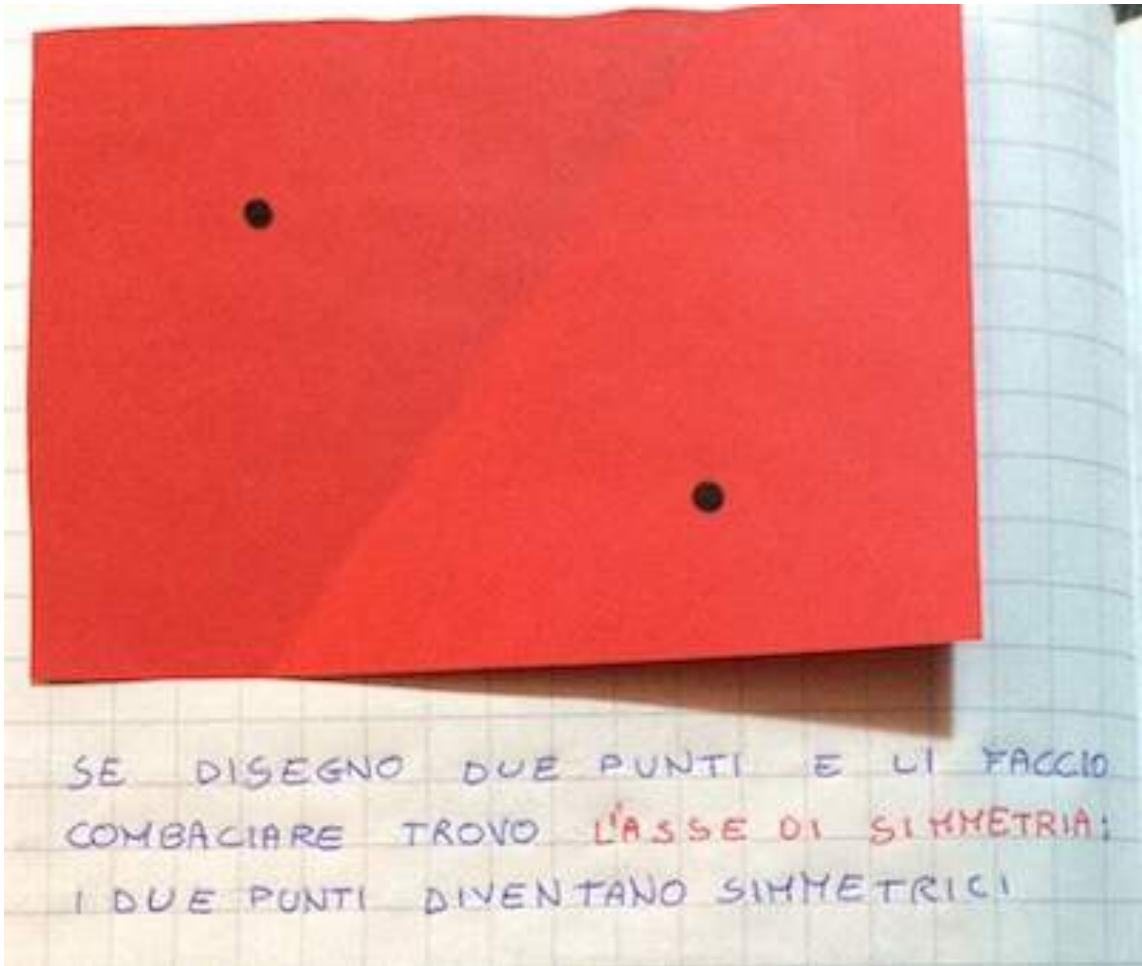 SE DISEGNO DUE PUNTI E LI FACCIO
COMBACIARE TROVO L'ASSE DI SIMMETRIA:
I DUE PUNTI DIVENTANO SIMMETRICI